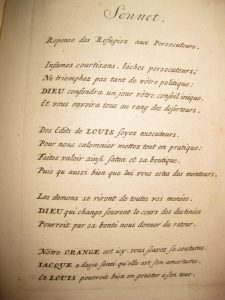 Sonnet.
Réponse des Refugiez aux Persecuteurs.
Infames courtisans, lâches persecuteurs,
Ne triomphez pas tant de vôtre politique:
DIEU confondra un jour vôtre conseil inique
Et vous envoira tous au rang des deserteurs.
Des Edits de LOUIS soyez executeurs.
Pour nous calomnier mettez tout en pratique:
Faites valoir ainsi satan et sa boutique.
Puis qu aussi bien que lui vous estes des menteurs.
Les demons se riront de toutes vos menées.
DIEU qui change souvent le cours des destinées
Pourroit par sa bonté nous donner du retour.
Nôtre ORANGE est icy vous sçavez sa coutume.
IACQUE a deja senti qu'elle est fort
Et LOUIS pourroit bien en gouster a son tour.